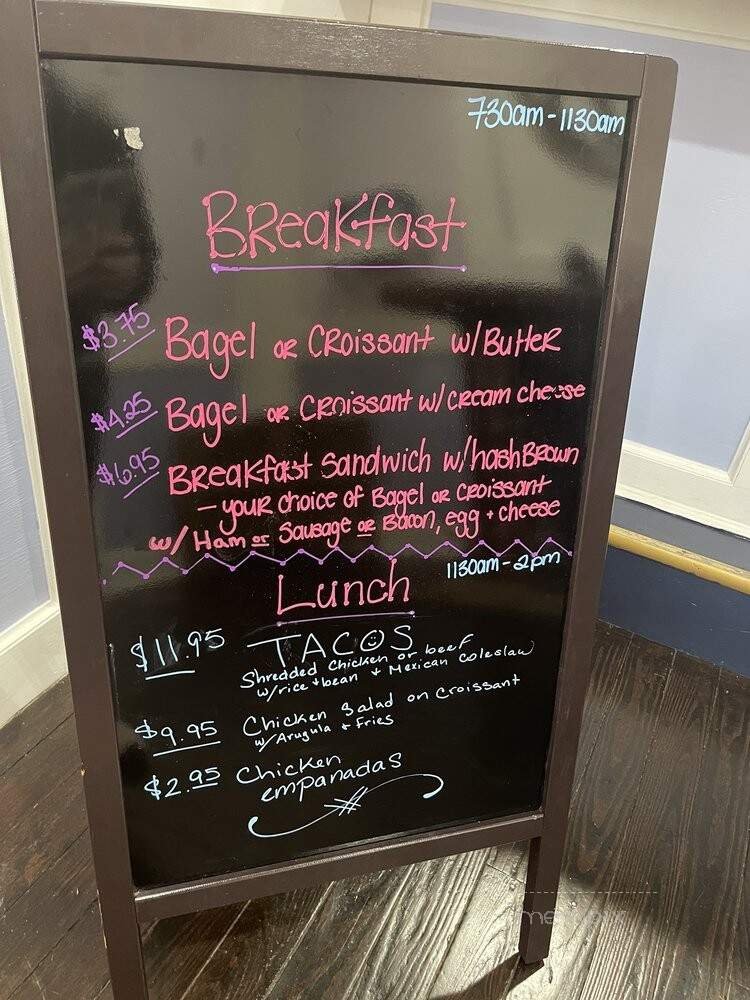 730am-1130am
Breakfast
$3.75 Bagel or Croissant w/Butter
$4.25 Bagel or Croissant w/cream cheese
$6.95 Breakfast Sandwich w/hashBrown
- your choice of Bagel or Croissant
w/ Ham or Sausage or Bacon, egg + cheese
1130am-2pm
Lunch
$11.95 TACOS
Shredded Chicken or beef
w/rice + bean + Mexican coleslaw
$9.95 Chicken Salad on Croissant
w/Arugula & Fries
$2.95 Chicken
empanadas